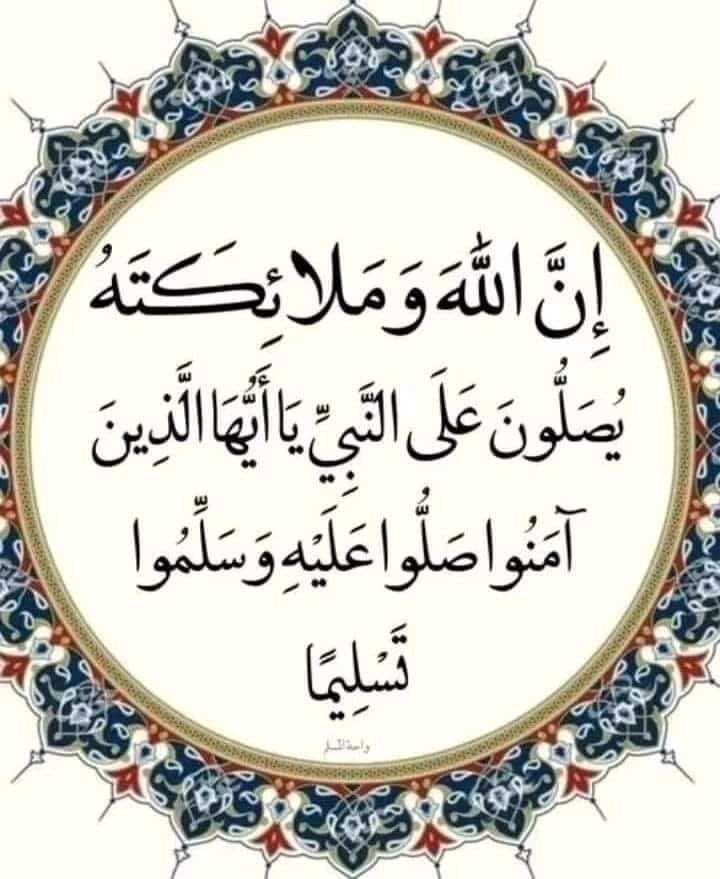 إِنَّ اللَّهَ وَمَلَائِكَتَهُ
يُصَلُّونَ عَلَى النَّبِيِّ يَا أَيُّهَا الَّذِينَ
آمَنُوا صَلُّوا عَلَيْهِ وَسَلِّمُوا
تَسْلِيمًا
واحة المسلم